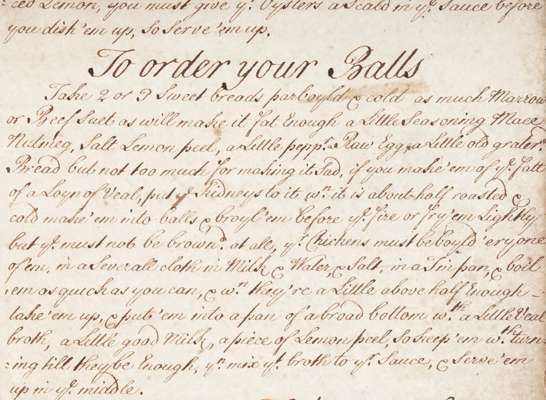 :ced Lemon, you must give y.e Oysters a Scald in y.e Sauce before
you dish 'em up, so serve 'em up.
To order your Balls
Take 2 or 3 Sweet breads parboyld & cold as much Marrow
or Beef Suet as will make it fat Enough a Little Seasoning Mace
Nutmeg, Salt Lemon peel, a Little pepp.r a Raw Egg a Little old grated
Bread but not too much for making it Sad, if you make 'em of y.e fatt
of a Loyn of Veal, put y.e Kidneys to it w.n it is about half roasted &
cold make 'em into balls & broyl 'em before y.e fire or fry 'em Lightly
but y.e must not be brown.d at all, y.e Chickens must be boyld 'ery one
of 'em, in a Severall cloth in Milk & Water & Salt, in a Tin pan, & boil
'em as quick as you can, & w.n they're a Little above half Enough
take 'em up, & put 'em into a pan of a broad bottom w.th a Little Veal
broth, a Little good Milk, a piece of Lemon peel, so keep 'em w.th turn-
-ing till they be Enough, y.n mix y.t broth to y.e Sauce, & serve 'em
up in y.e middle.